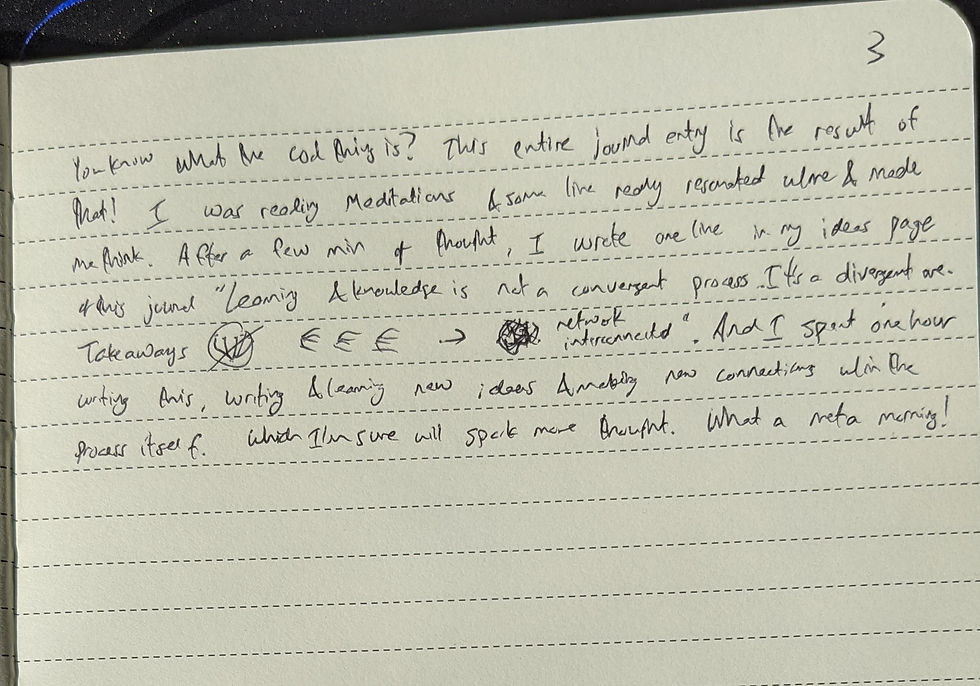 3
You know what the cool thing is? This entire journal entry is the result of
that! I was reading Meditations & some line really resonated w/me & made
me think. After a few min of thought, I wrote one line in my ideas page
of this journal "Learning & knowledge is not a convergent process. It's a divergent one.
Takeaways → network
interconnected". And I spent one hour
writing this, writing & learning new ideas & making new connections w/in the
process itself. Which I'm sure will spark more thought. What a meta morning!